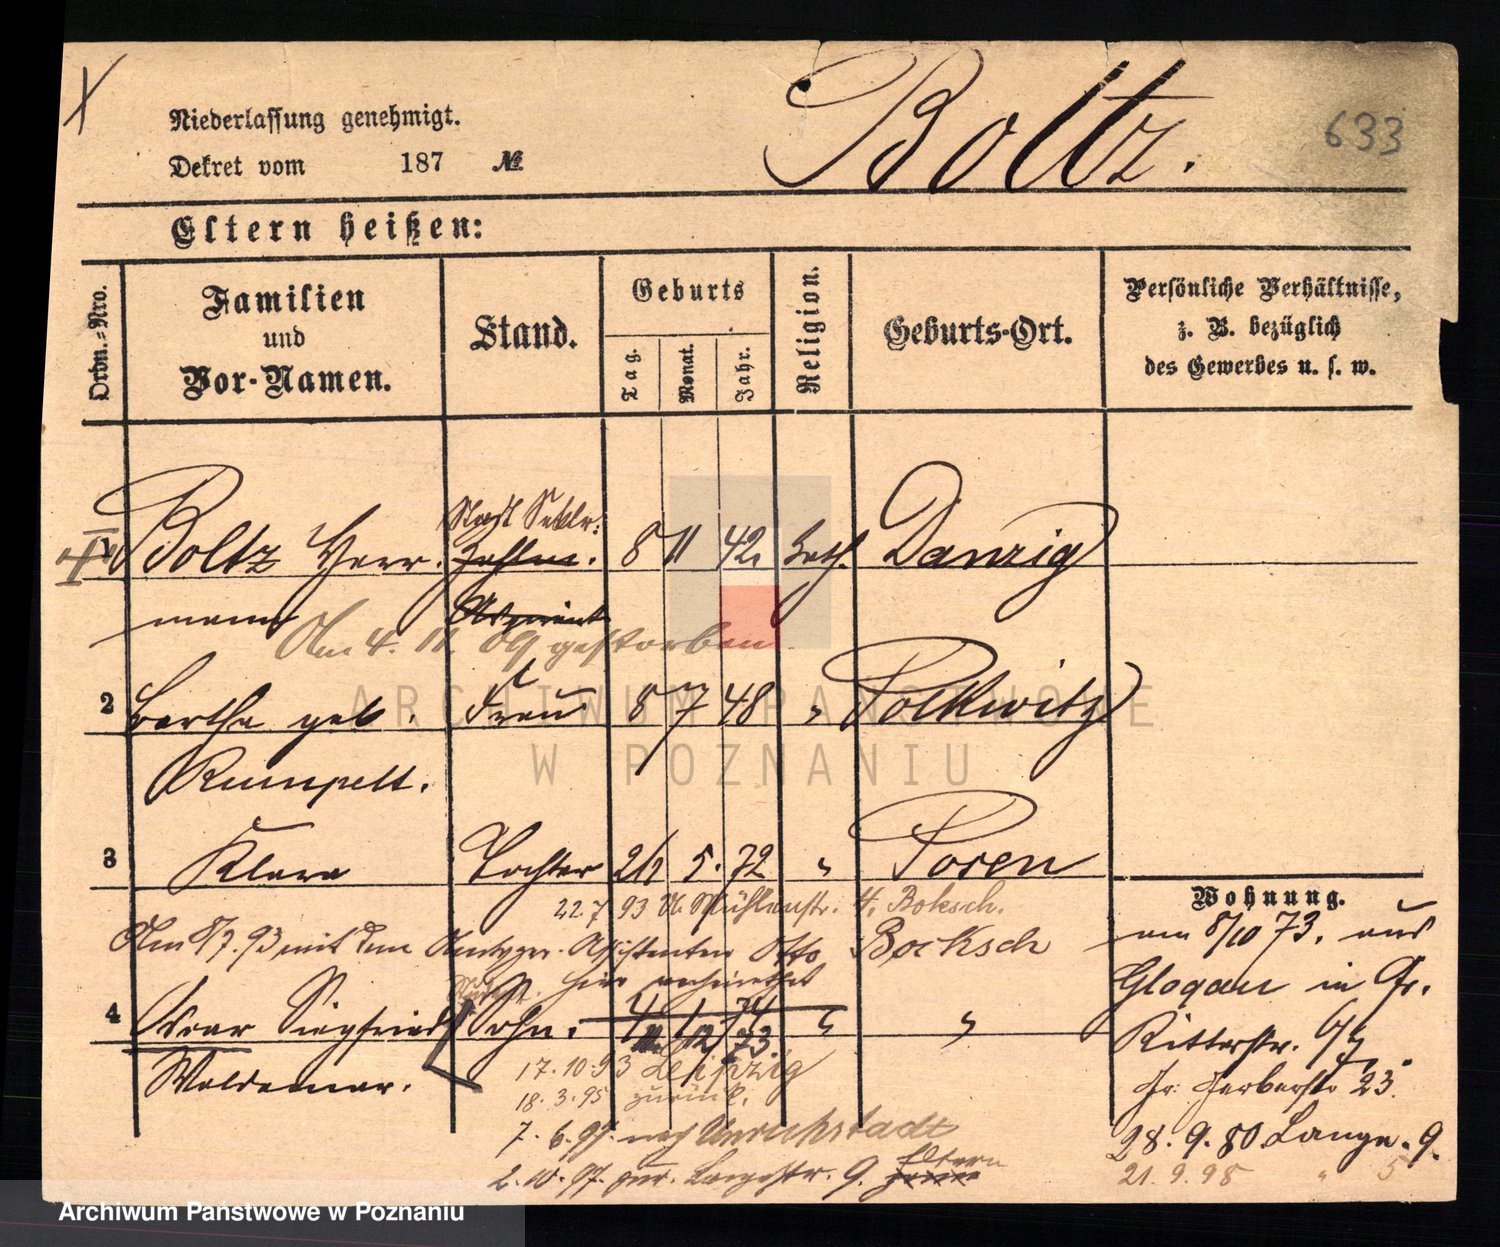 Niederlassung genehmigt.
Dekret vom 187 №
Boltz.
633
Eltern heißen:
Ordn.-Nro.
Familien
und
Vor-Namen.
Stand.
Geburts
Tag.
Monat.
Jahr.
Religion.
Geburts-Ort.
Persönliche Verhältnisse,
z. B. bezüglich
des Gewerbes u. s. w.
Stadt Sekr.
1 Boltz Herr- 8 11 42 kath. Danzig
mann
Am 4. 11. 09 gestorben.
2 Bertha geb. Frau 8 7 48 " Polkwitz
Rumpelt.
3 Klara Tochter 21 5. 72 " Posen
22. 7 93 Mühlenstr. 4. Boksch.
Am 8/7. 93 mit dem Assistenten Otto Bocksch
hier verheirathet
4 Oscar Siegfried Sohn. 4 1 74 " "
12 73.
Waldemar.
17. 10. 93 Leipzig
18. 3. 95 zurück.
7. 6. 97. nach Unruhstadt
2. 10. 97. zur. Langestr. 9. Eltern
Wohnung.
am 8/10 73. aus
Glogau in Gr.
Ritterstr. 6/7.
Gr. Gerberstr 23.
28. 9. 80 Lange. 9.
21. 9. 98 " 5
ARCHIWUM PAŃSTWOWE
W POZNANIU
Archiwum Państwowe w Poznaniu